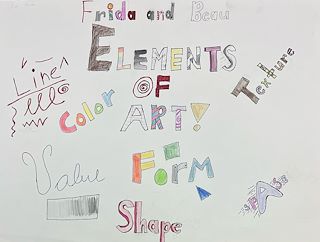 Frida and Beau
ELEMENTS
OF
ART!
Line
Color
Texture
Value
Form
Shape